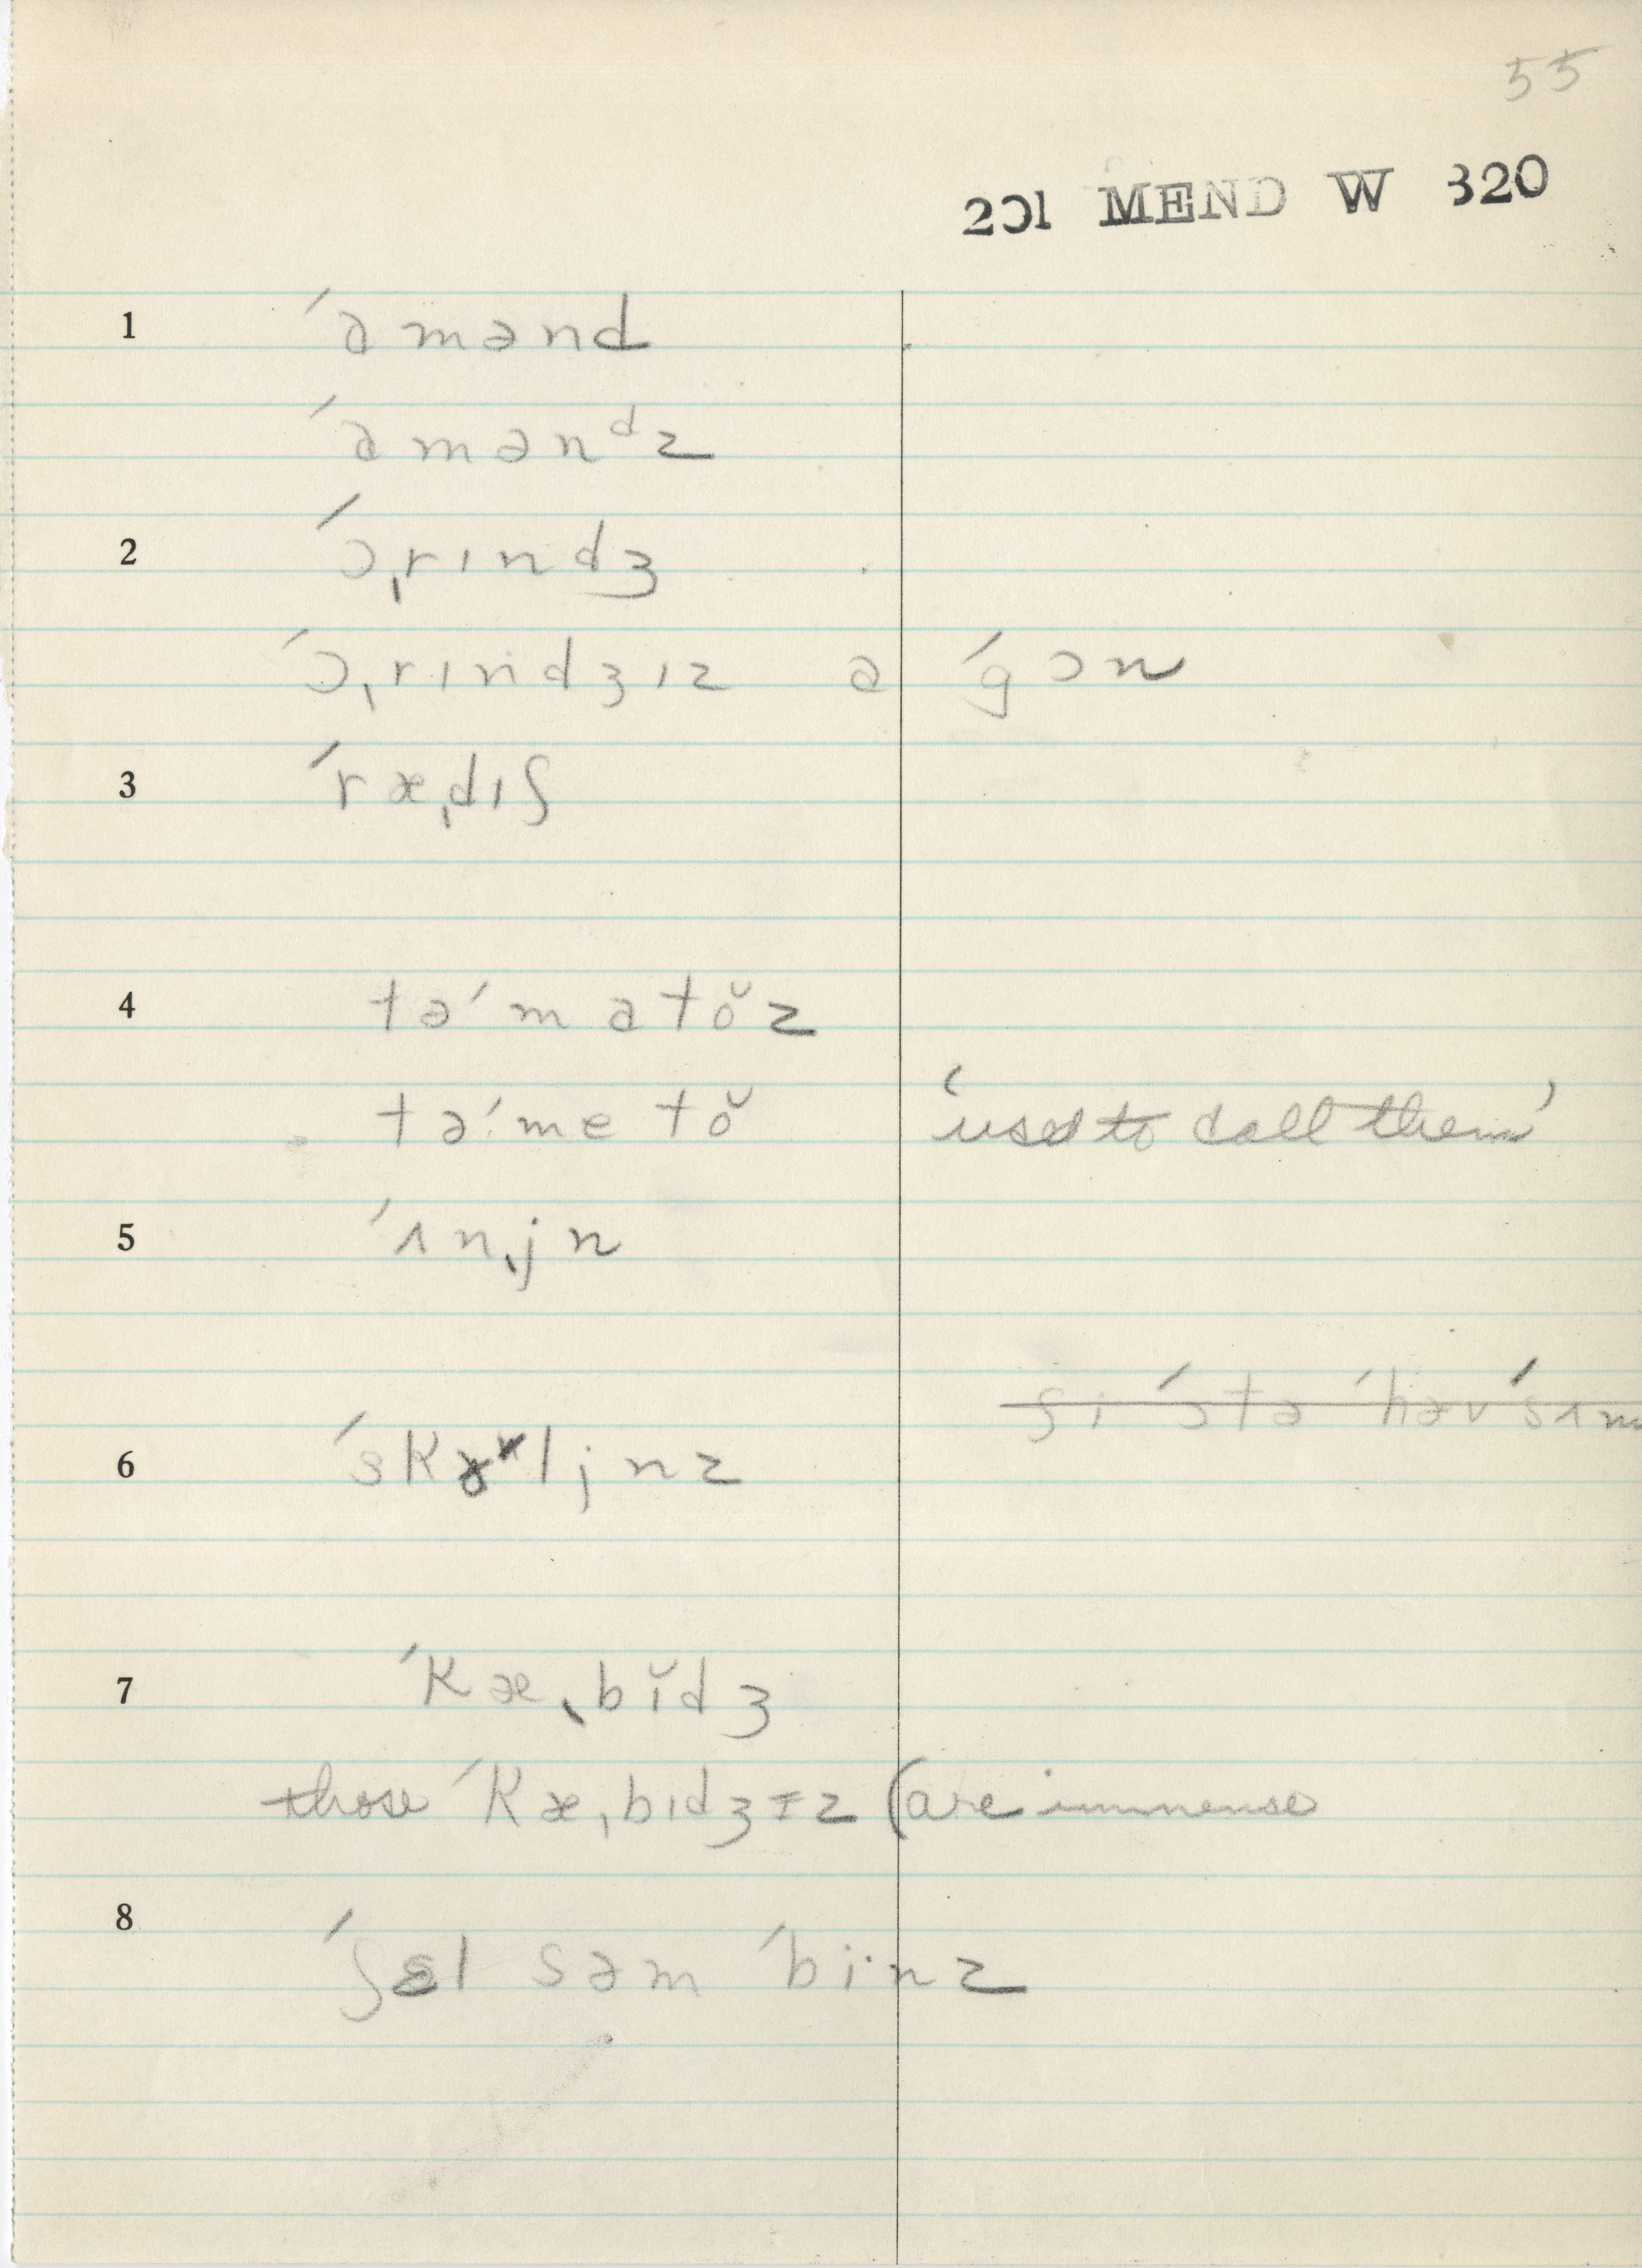 55
201 MEND W 320
1 ˈɑmənd
ˈɑmənᵈz
2 ˈɔˌrɪndʒ
ˈɔˌrɪndʒɪz əˈgɔn
3 ˈræˌdɪʃ
4 təˈmatŏz
təˈmetŏ 'used to call them'
5 ˈʌnˌjn
ʃi ˈɔtə ˈhəv ˈsʌm
6 ˈskɚljnz
7 ˈkæˌbĭdʒ
those ˈkæˌbɪdʒɪz (are immense
8 ˈʃɛl səm ˈbinz